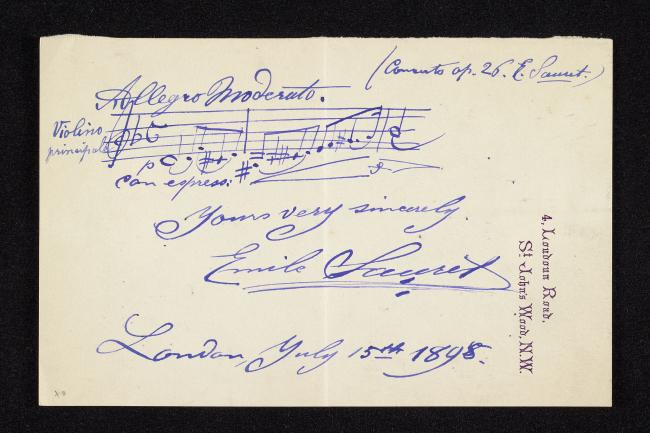 (Concerto op. 26. E. Sauret.)
Allegro Moderato.
Violino
principale
p
con espress:
Yours very sincerely
Emile Sauret
London, July 15th 1898.
4, Loudoun Road,
St John's Wood, N.W.